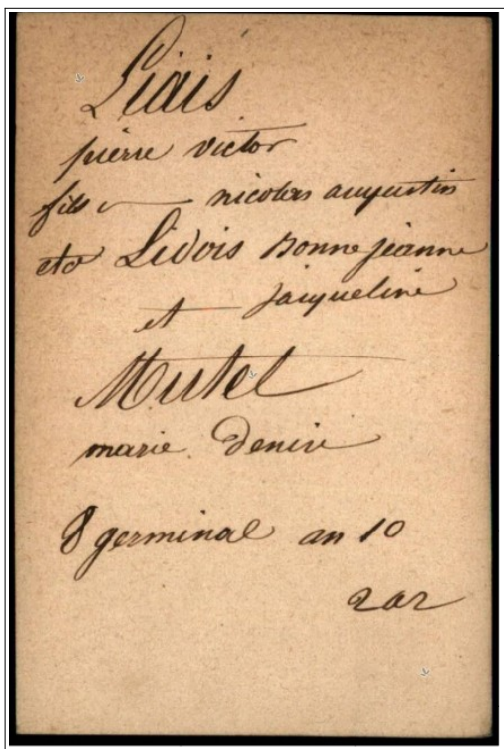 Liais
pierre victor
fils nicolas augustin
et Lidois Bonne jeanne
jacqueline
et
Mutel
marie Denise
8 germinal an 10
2ar